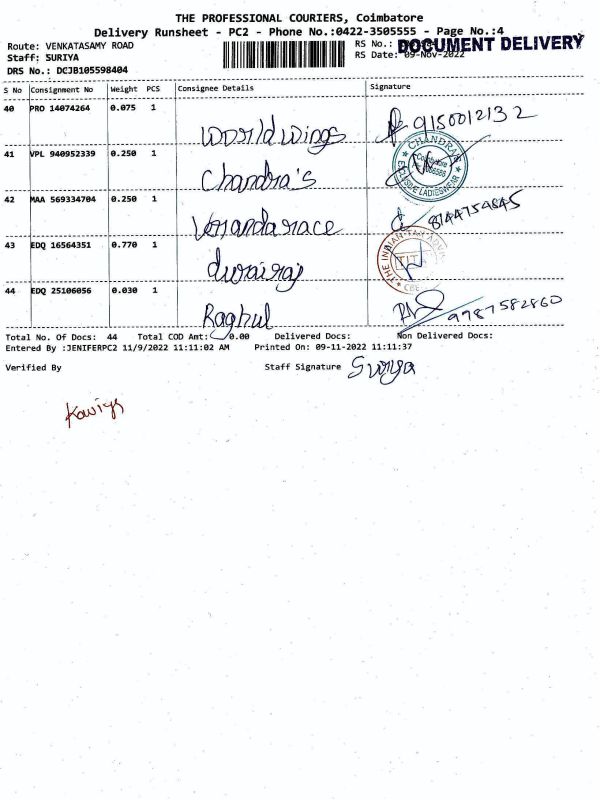 THE PROFESSIONAL COURIERS, Coimbatore
Delivery Runsheet - PC2 - Phone No.:0422-3505555 - Page No.:4
Route: VENKATASAMY ROAD
RS No.:
DOCUMENT DELIVERY
Staff: SURIYA
RS Date: 09-Nov-2022
DRS No.: DCJB105598404
S No Consignment No Weight PCS Consignee Details Signature
40 PRO 14074264 0.075 1
World Wings 9150012132
41 VPL 940952339 0.250 1
Chandra's
CHANDRA'S Coimbatore EXCLUSIVE LADIESWEAR
42 MAA 569334704 0.250 1
Verandarace 8144759845
43 EDQ 16564351 0.770 1
durairaj
THE INDIAN
44 EDQ 25106056 0.030 1
Raghul 9787582860
Total No. Of Docs: 44 Total COD Amt: 0.00 Delivered Docs: Non Delivered Docs:
Entered By :JENIFERPC2 11/9/2022 11:11:02 AM Printed On: 09-11-2022 11:11:37
Verified By Staff Signature Suriya
Kaviya